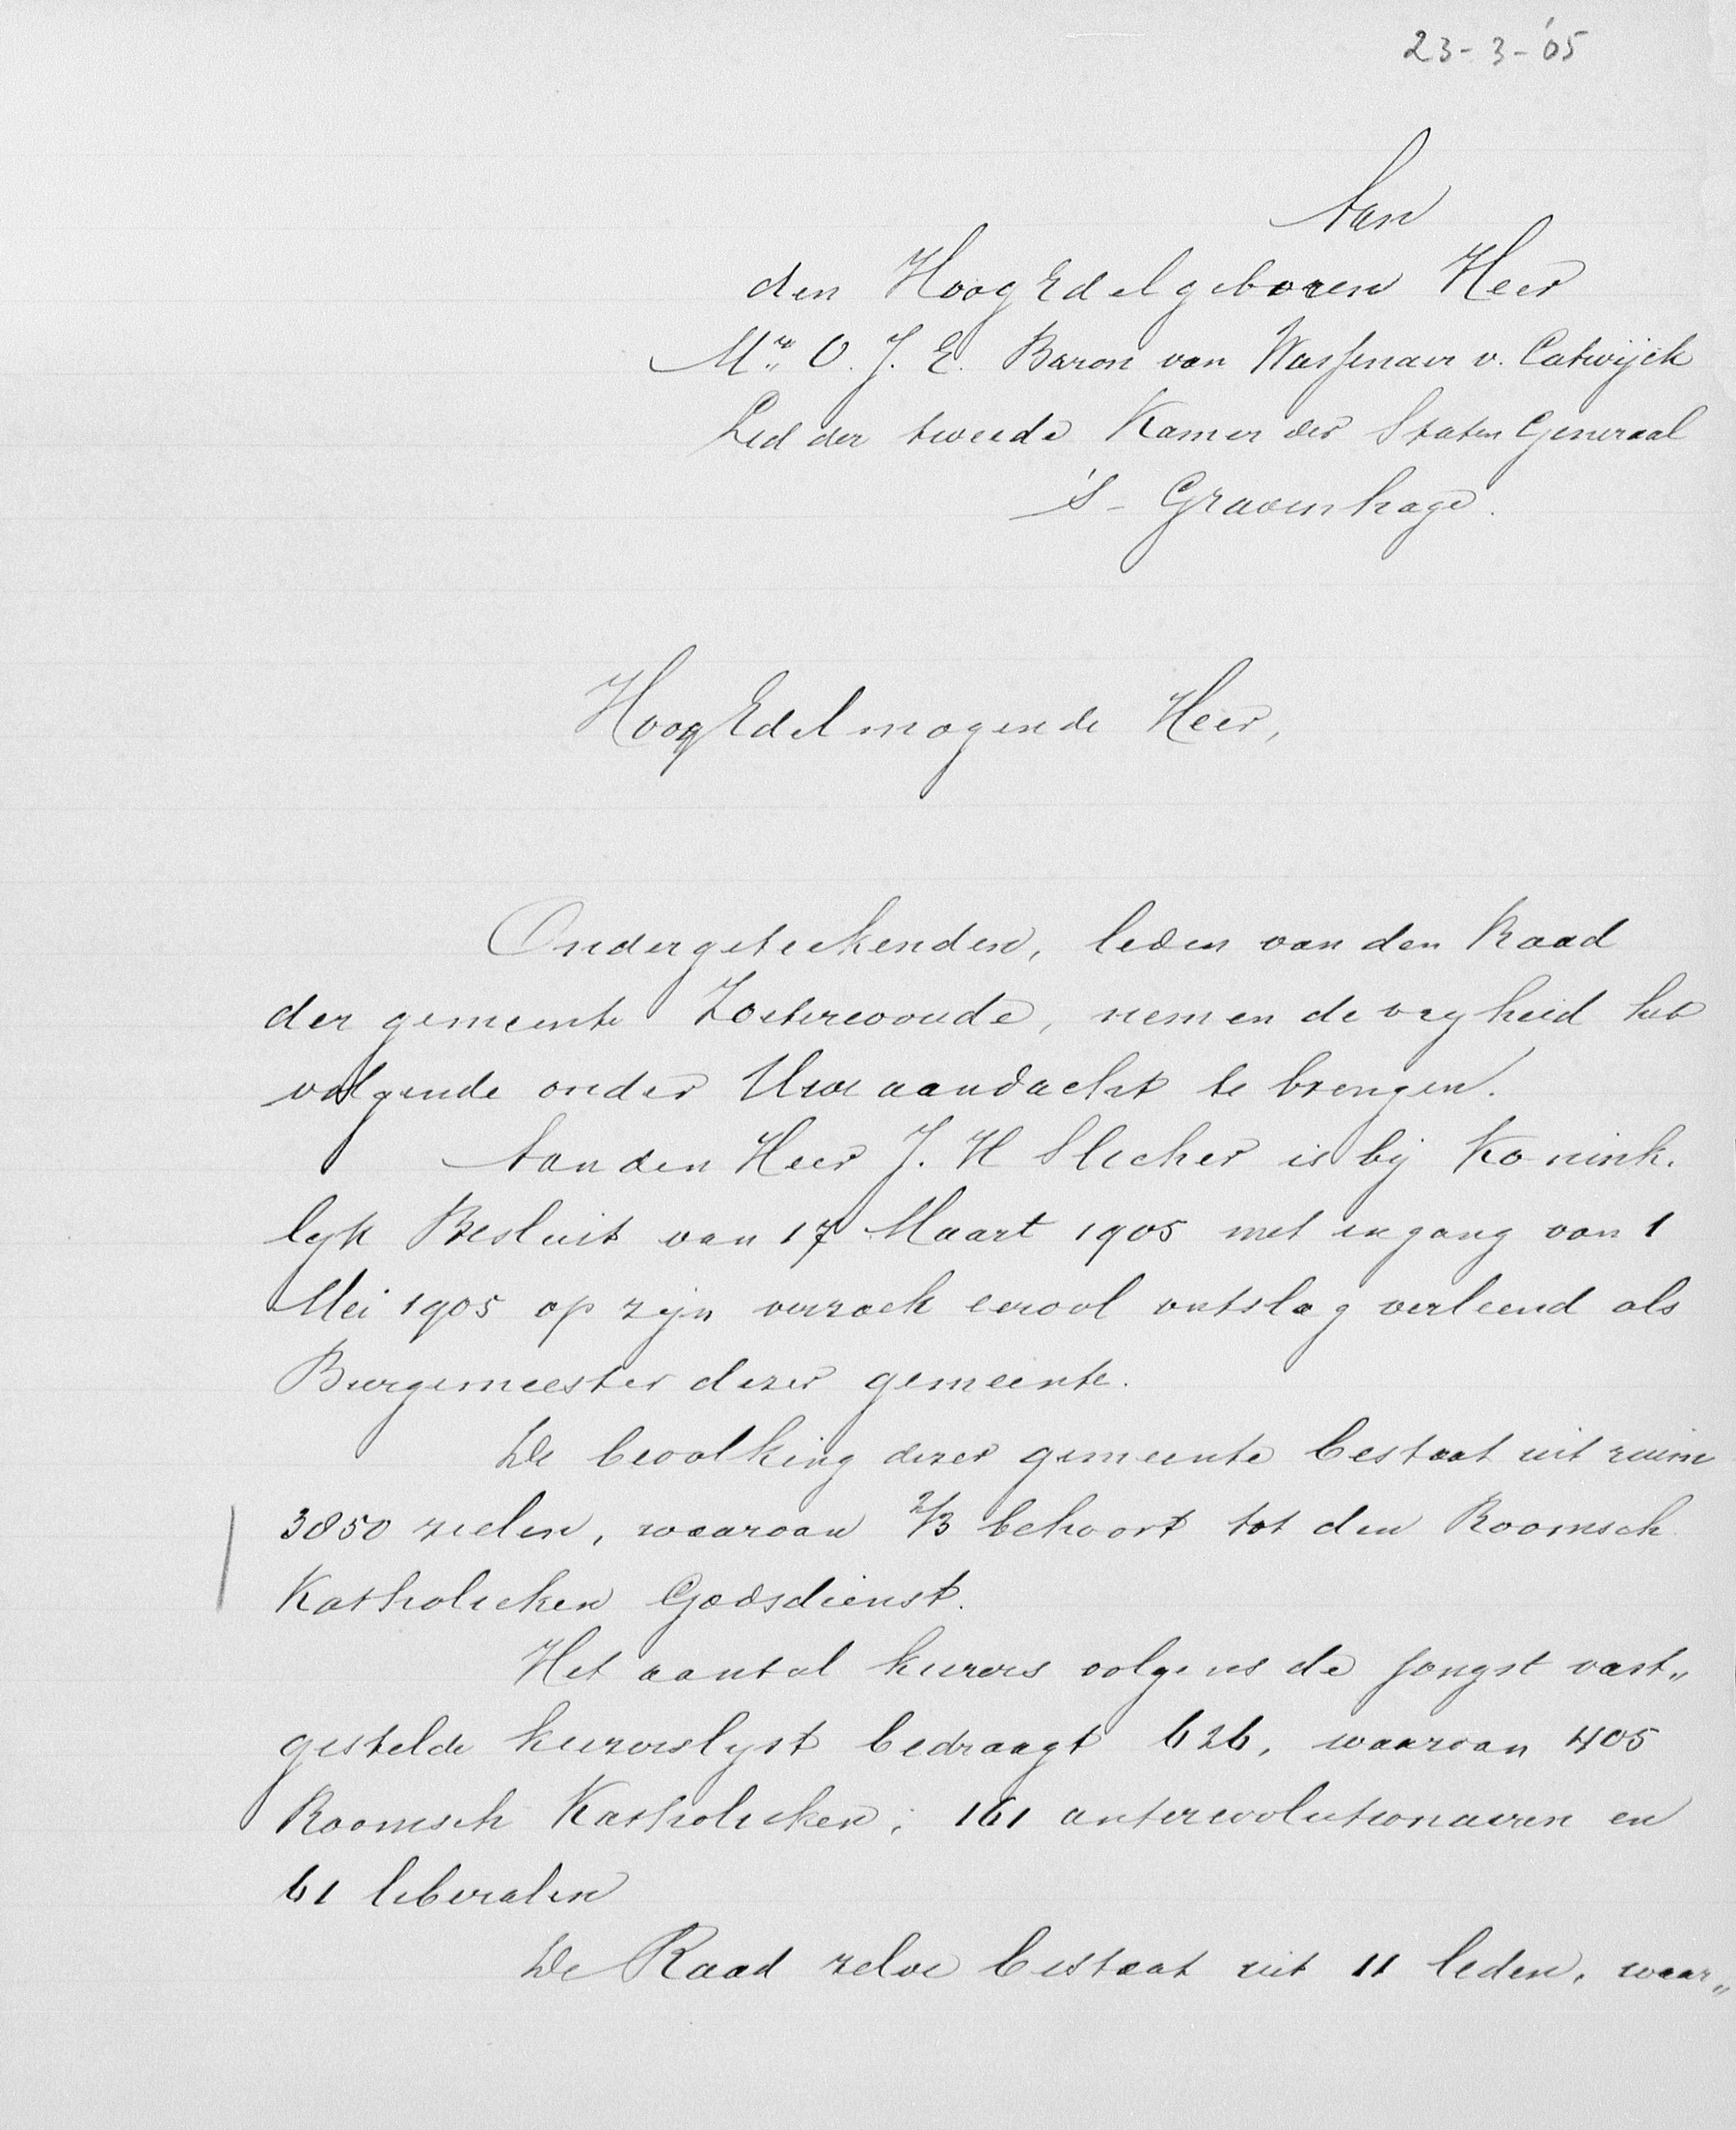 23-3-'05
Aan
den HoogEdelgeboren Heer
Mr. O. J. E. Baron van Wassenaer v. Catwijck
Lid der tweede Kamer der Staten Generaal
's-Gravenhage.
HoogEdelmogende Heer,
Ondergeteekenden, leden van den Raad
der gemeente Zoeterwoude, nemen de vryheid het
volgende onder Uwe aandacht te brengen.
Aan den Heer J. H Slicher is bij Konink.
lyk Besluit van 17 Maart 1905 met ingang van 1
Mei 1905 op zijn verzoek eervol ontslag verleend als
Burgemeester dezer gemeente.
De bevolking dezer gemeente bestaat uit ruim
3850 zielen, waarvan 2/3 behoort tot den Roomsch
Katholieken Godsdienst.
Het aantal kiezers volgens de jongst vast„
gestelde kiezerslyst bedraagt 626, waarvan 405
Roomsch Katholieken; 161 antirevolutionairen en
61 liberalen
De Raad zelve bestaat uit 11 leden, waar„